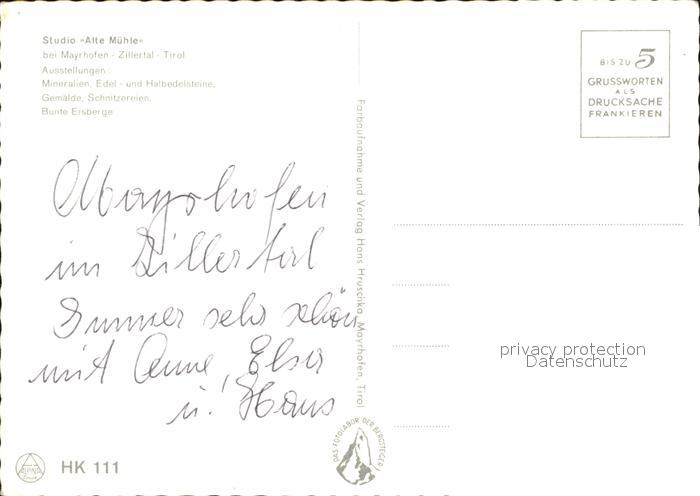 Studio »Alte Mühle«
bei Mayrhofen - Zillertal - Tirol
Ausstellungen:
Mineralien, Edel- und Halbedelsteine,
Gemälde, Schnitzereien,
Bunte Eisberge
Mayrhofen
im Zillertal
Immer sehr schön
mit Anne, Elsa
u. Hans
HK 111
Farbaufnahme und Verlag Hans Hruschka, Mayrhofen, Tirol
DAS FOTOLABOR DER BERGSTEIGER
BIS ZU 5
GRUSSWORTEN
ALS
DRUCKSACHE
FRANKIEREN
privacy protection
Datenschutz